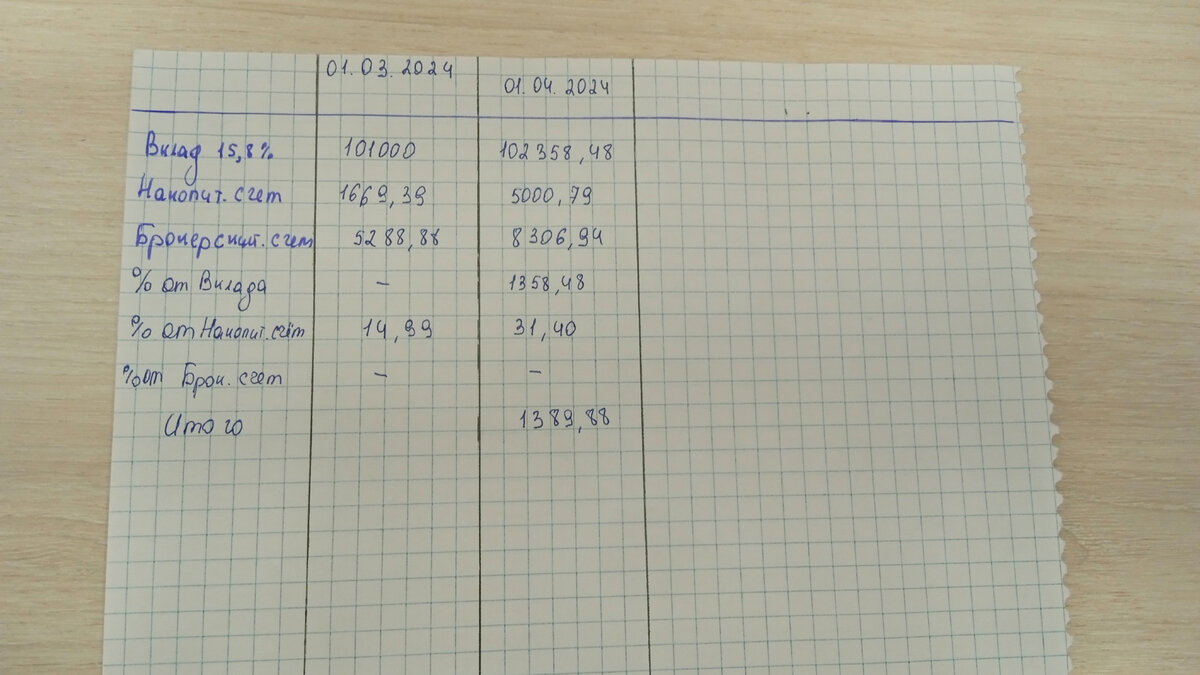 01.03.2024 01.04.2024
Вклад 15,8% 101000 102358,48
Накопит. счет 1669,39 5000,79
Брокерский. счет 5288,88 8306,94
% от Вклада – 1358,48
% от Накопит. счёт 14,99 31,40
% от Брок. счет – –
Итого 1389,88